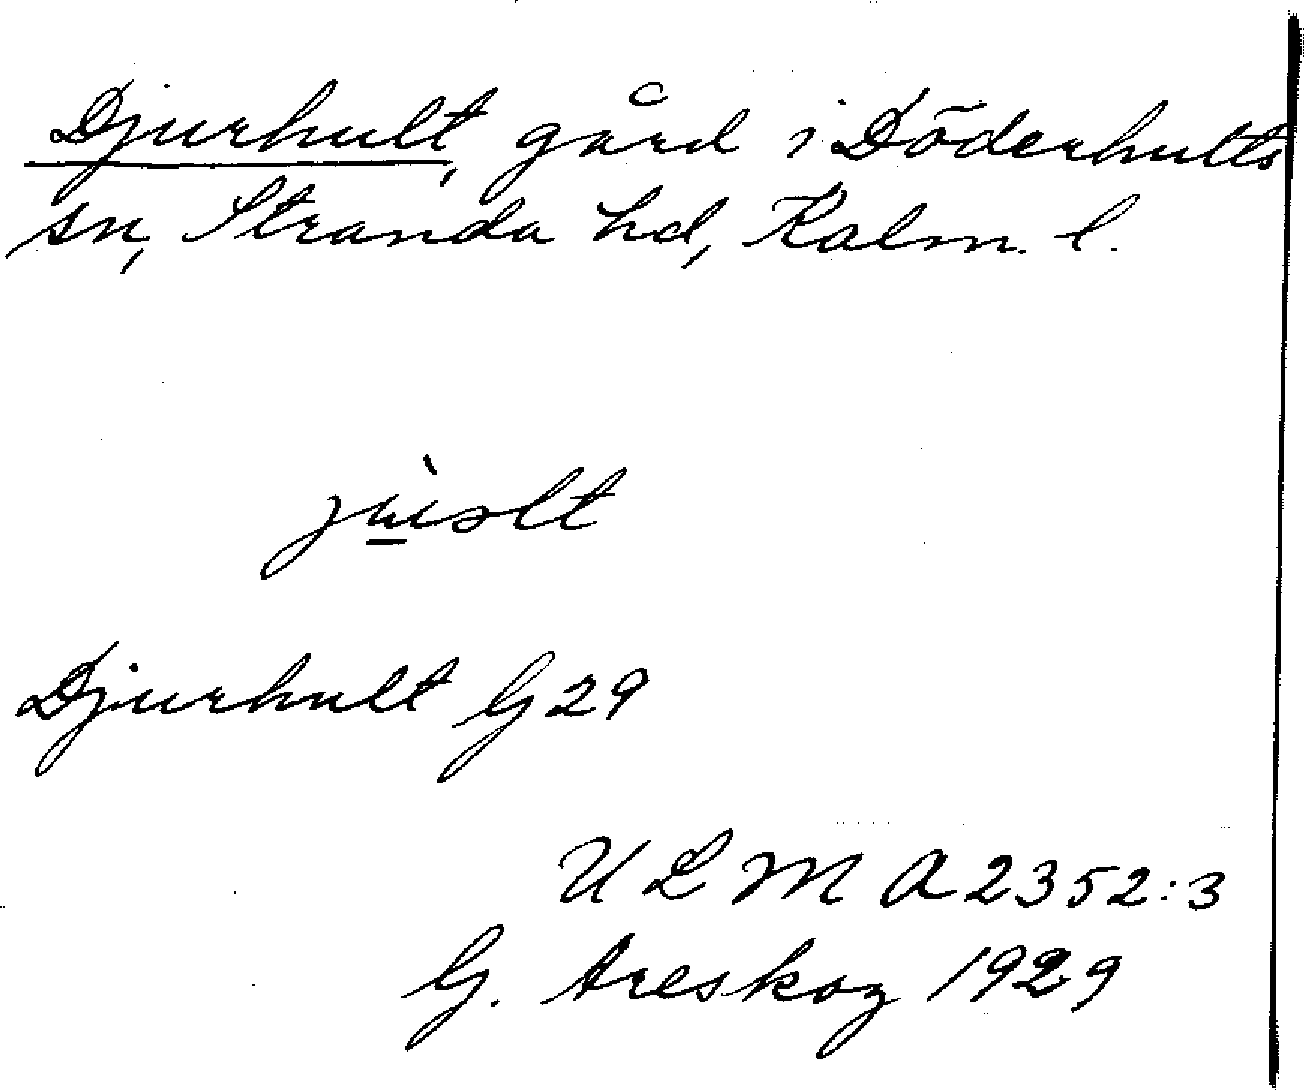 Djurhult, gård i Döderhults
sn, Stranda hd, Kalm. l.
Djurhult G 29
U L M A 2352:3
G. Areskog 1929